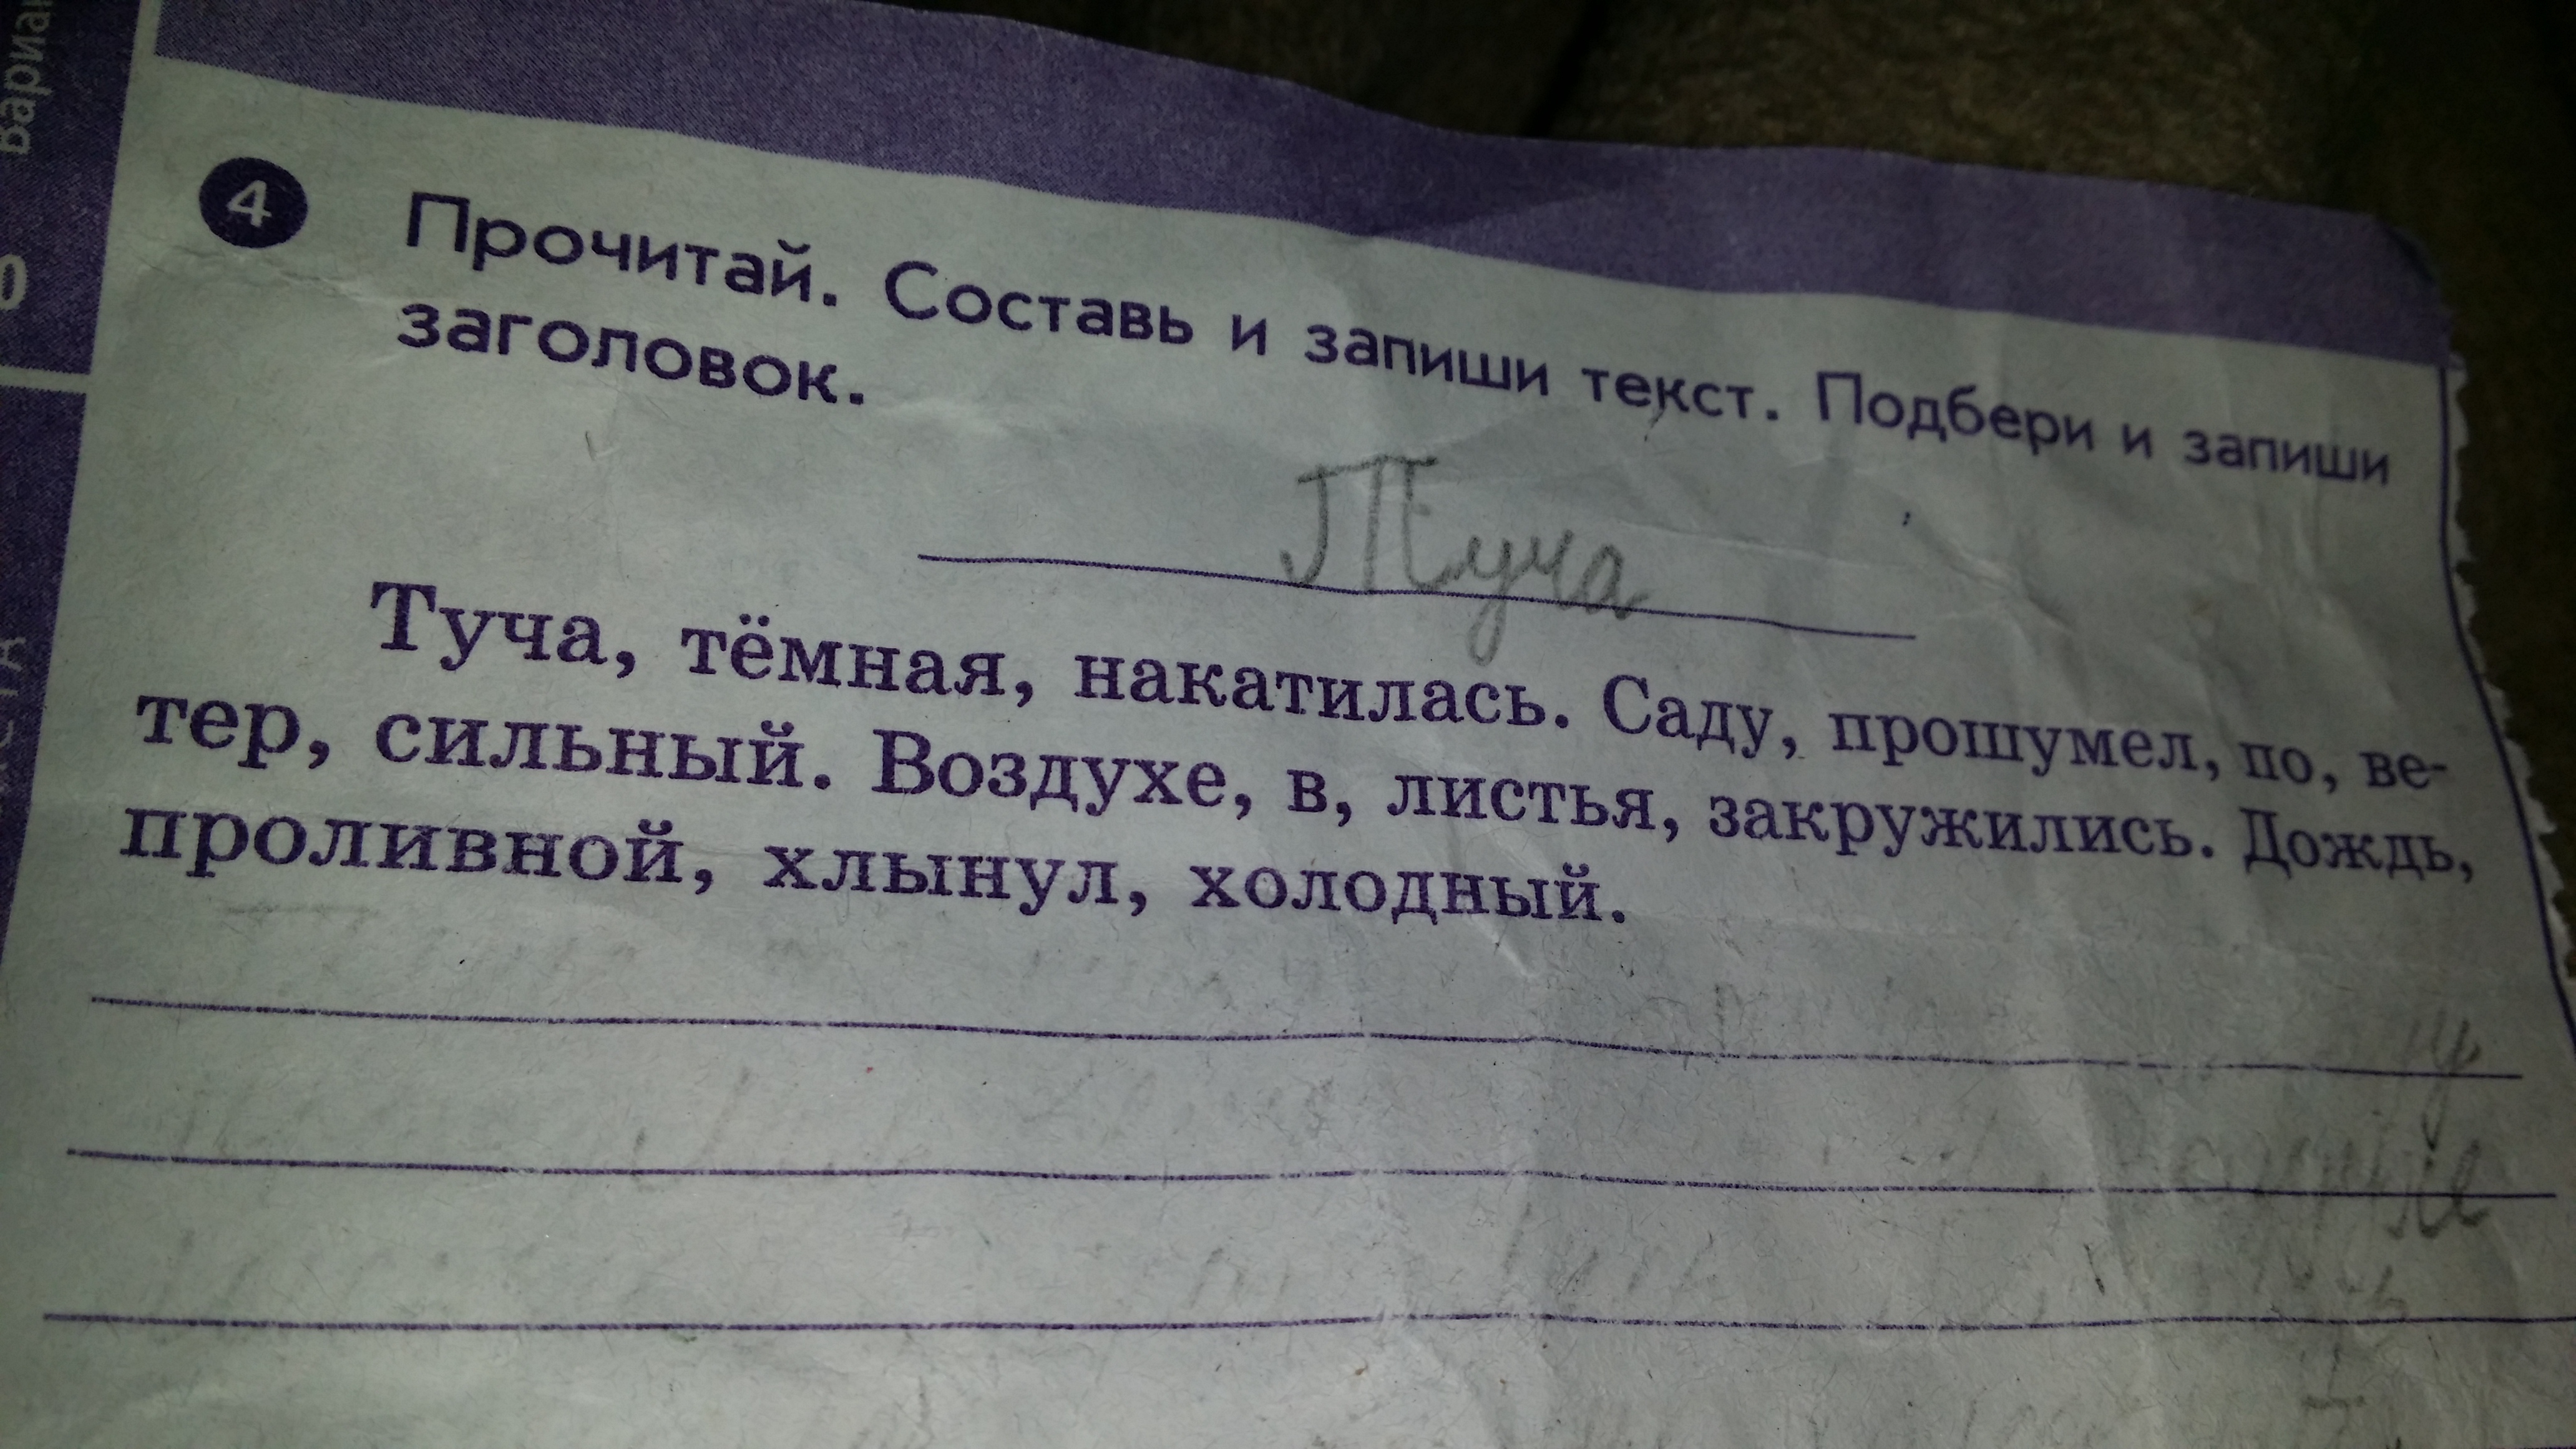 4 Прочитай. Составь и запиши текст. Подбери и запиши
заголовок.
Туча
Туча, тёмная, накатилась. Саду, прошумел, по, ве-
тер, сильный. Воздухе, в, листья, закружились. Дождь,
проливной, хлынул, холодный.